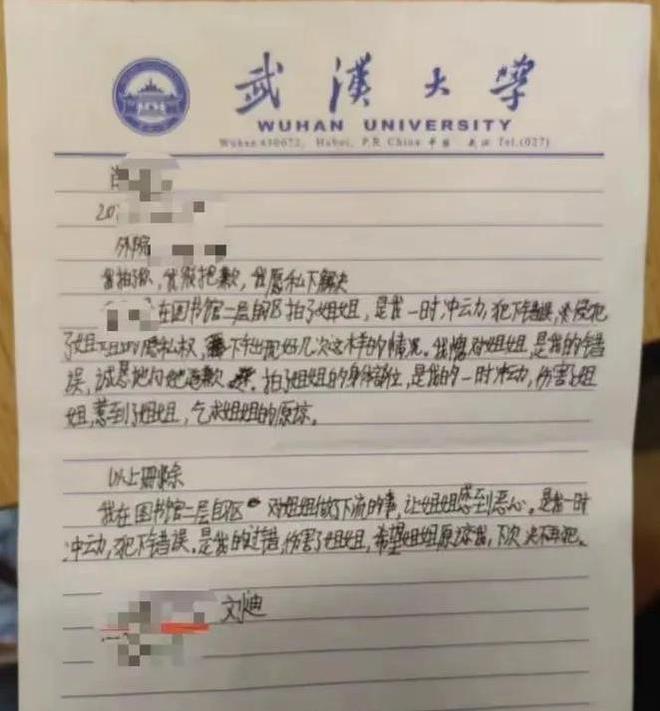 武漢大學
WUHAN UNIVERSITY
Wuhan 430072, Hubei, P.R China 中国 武汉 Tel.(027)
肖
20
外院
我拍了你，我很抱歉，我愿私下解决
在图书馆二层自习区拍了姐姐，是我一时冲动，犯下错误，侵犯
了姐姐的隐私权，出现好几次这样的情况。我愧对姐姐，是我的错
误，诚恳地向她道歉，拍了姐姐的身体部位，是我的一时冲动，伤害了姐
姐，惹到了姐姐，乞求姐姐的原谅。
以上册除
我在图书馆二层自习区对姐姐做了下流的事，让姐姐感到恶心。是我一时
冲动，犯下错误。是我的过错，伤害了姐姐，希望姐姐原谅我，下次决不再犯。